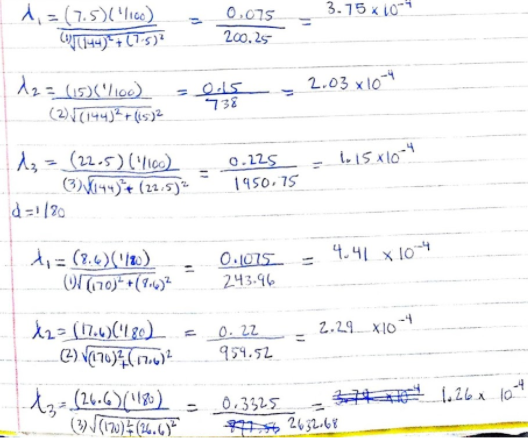 λ₁ = (7.5)(1/100) / (1)√(144)²+(7.5)² = 0.075 / 200.25 = 3.75 x 10⁻⁴
λ₂ = (15)(1/100) / (2)√(144)²+(15)² = 0.15 / 738 = 2.03 x10⁻⁴
λ₃ = (22.5)(1/100) / (3)√(144)²+(22.5)² = 0.225 / 1950.75 = 1.15 x10⁻⁴
d = 1/80
λ₁ = (8.6)(1/80) / (1)√(170)²+(8.6)² = 0.1075 / 243.96 = 4.41 x 10⁻⁴
λ₂ = (17.6)(1/80) / (2)√(170)²+(17.6)² = 0.22 / 959.52 = 2.29 x10⁻⁴
λ₃ = (26.6)(1/80) / (3)√(170)²+(26.6)² = 0.3325 / 2632.68 = 1.26 x 10⁻⁴